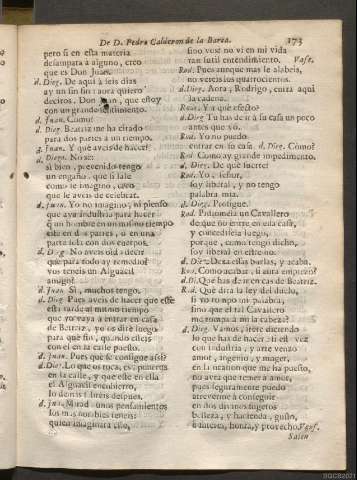 De D. Pedro Calderon de la Barca. 173
pero si en esta materia
desampata à alguno, creo
que es Don Juan.
d. Dieg. De aqui à seis dias
ay un sin fin: aora quiero
deciros, Don Juan, que estoy
con un grande sentimiento.
d. Juan. Como?
d. Dieg. Beatriz me ha citado
para dos partes à un tiempo.
d. Juan. Y què aveis de hacer?
d. Diego. No sè:
si bien, prevenido tengo
un engaño, que si sale
como le imagino, creo
que le aveis de celebrar.
d. Juan. Yo no imagino, ni pienso
que aya industria para hacer
q un hombre en un mismo tiempo
estè en dos partes, ò en una
parte sola con dos cuerpos.
d. Dieg. No aveis oìdo decir
que para todo ay remedio?
vos teneis un Alguacil
amigo?
d. Juan. Si, muchos tengo.
d. Dieg. Pues aveis de hacer que este
estè tarde al mismo tiempo
que yo vaya à entrar en casa
de Beatriz, yo os dirè luego
para què fin, quando esteis
con èl en la calle puesto.
d. Juan. Pues què se consigue assi?
d. Dieg. Lo que os toca, es, poneros
en la calle, y que este en ella
el Alguacil encubierto,
lo demàs sabreis despues.
d. Juan. Mirad: unos pensamientos
los mas notables teneis:
quien imaginàra esso,
sino vos? no vi en mi vida
tan sutil entendimiento. Vase.
Rod. Pues aunque mas le alabeis,
no vereis los quatrocientos.
d. Dieg. Aora, Rodrigo, quita aqui
la cadena.
Rod. Ya què efecto?
d. Dieg. Tu has de ir à su casa un poco
antes que yo.
Rod. Yo no puedo
entrar en su casa. d. Dieg. Como?
Rod. Como ay grande impedimento.
d. Dieg. De què suerte?
Rod. Yo, señor,
soy liberal, y no tengo
palabra mia.
d. Dieg. Prosigue.
Rod. Pidiòmela un Cavallero
de que no entre en essa casa,
y concedísela luego,
porque, como tengo dicho,
soy liberal en estremo.
d. Dieg. Dexa essas burlas, y acaba.
Rod. Como acabar, si aora empiezo?
d. Di. Que has de ir en cas de Beatriz.
Rod. Què dirà la ley del duelo,
si yo rompo mi palabra,
sino que el tal Cavallero
me rompa à mi la cabeza?
d. Dieg. Vamos, irète diciendo
lo que has de hacer: si esta vez
con industria, y arte venzo
amor, ingenio, y muger,
en la ocasion que me ha puesto,
no avrà que temer à amor,
pues seguramente puedo
atreverme à conseguir
en dos divinos sugetos
belleza, y hacienda, gusto,
è interès, honra, y provecho. Vase.
Salen